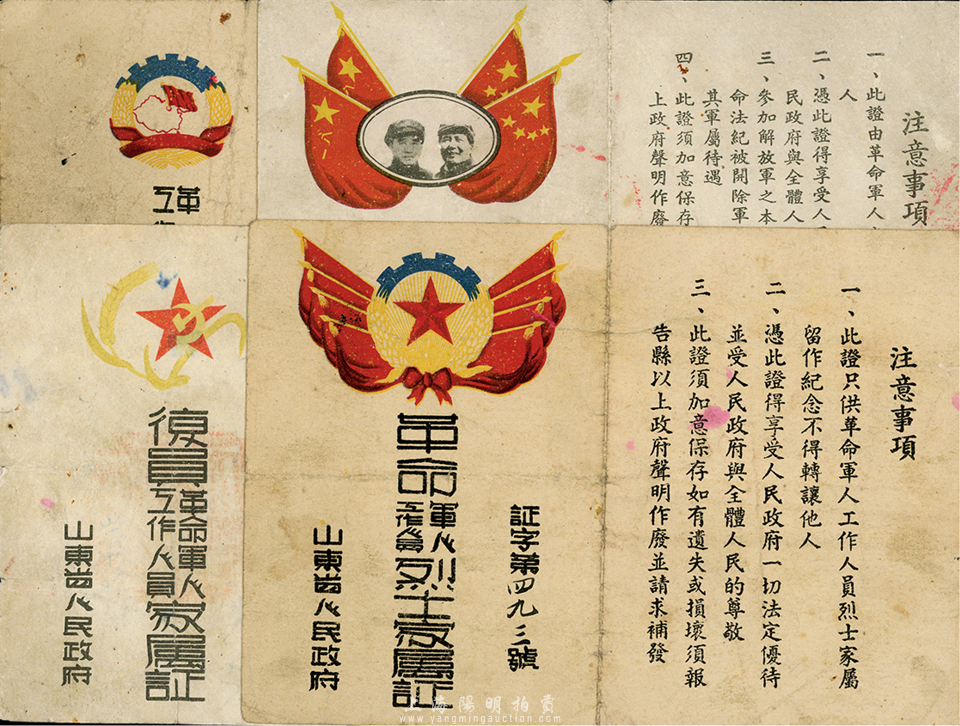 注意事項
一、此證由革命軍人
人
二、憑此證得享受人
民政府與全體人
三、參加解放軍之本
命法紀被開除軍
其軍屬待遇
四、此證須加意保存
上政府聲明作廢
八一
革
工作
注意事項
一、此證只供革命軍人工作人員烈士家屬
留作紀念不得轉讓他人
二、憑此證得享受人民政府一切法定優待
並受人民政府與全體人民的尊敬
三、此證須加意保存如有遺失或損壞須報
告縣以上政府聲明作廢並請求補發
証字第四九三號
革命軍人工作人員烈士家屬証
山東省人民政府
復員革命軍人工作人員家屬証
山東省人民政府
上海陽明拍賣
www.yangmingauction.com